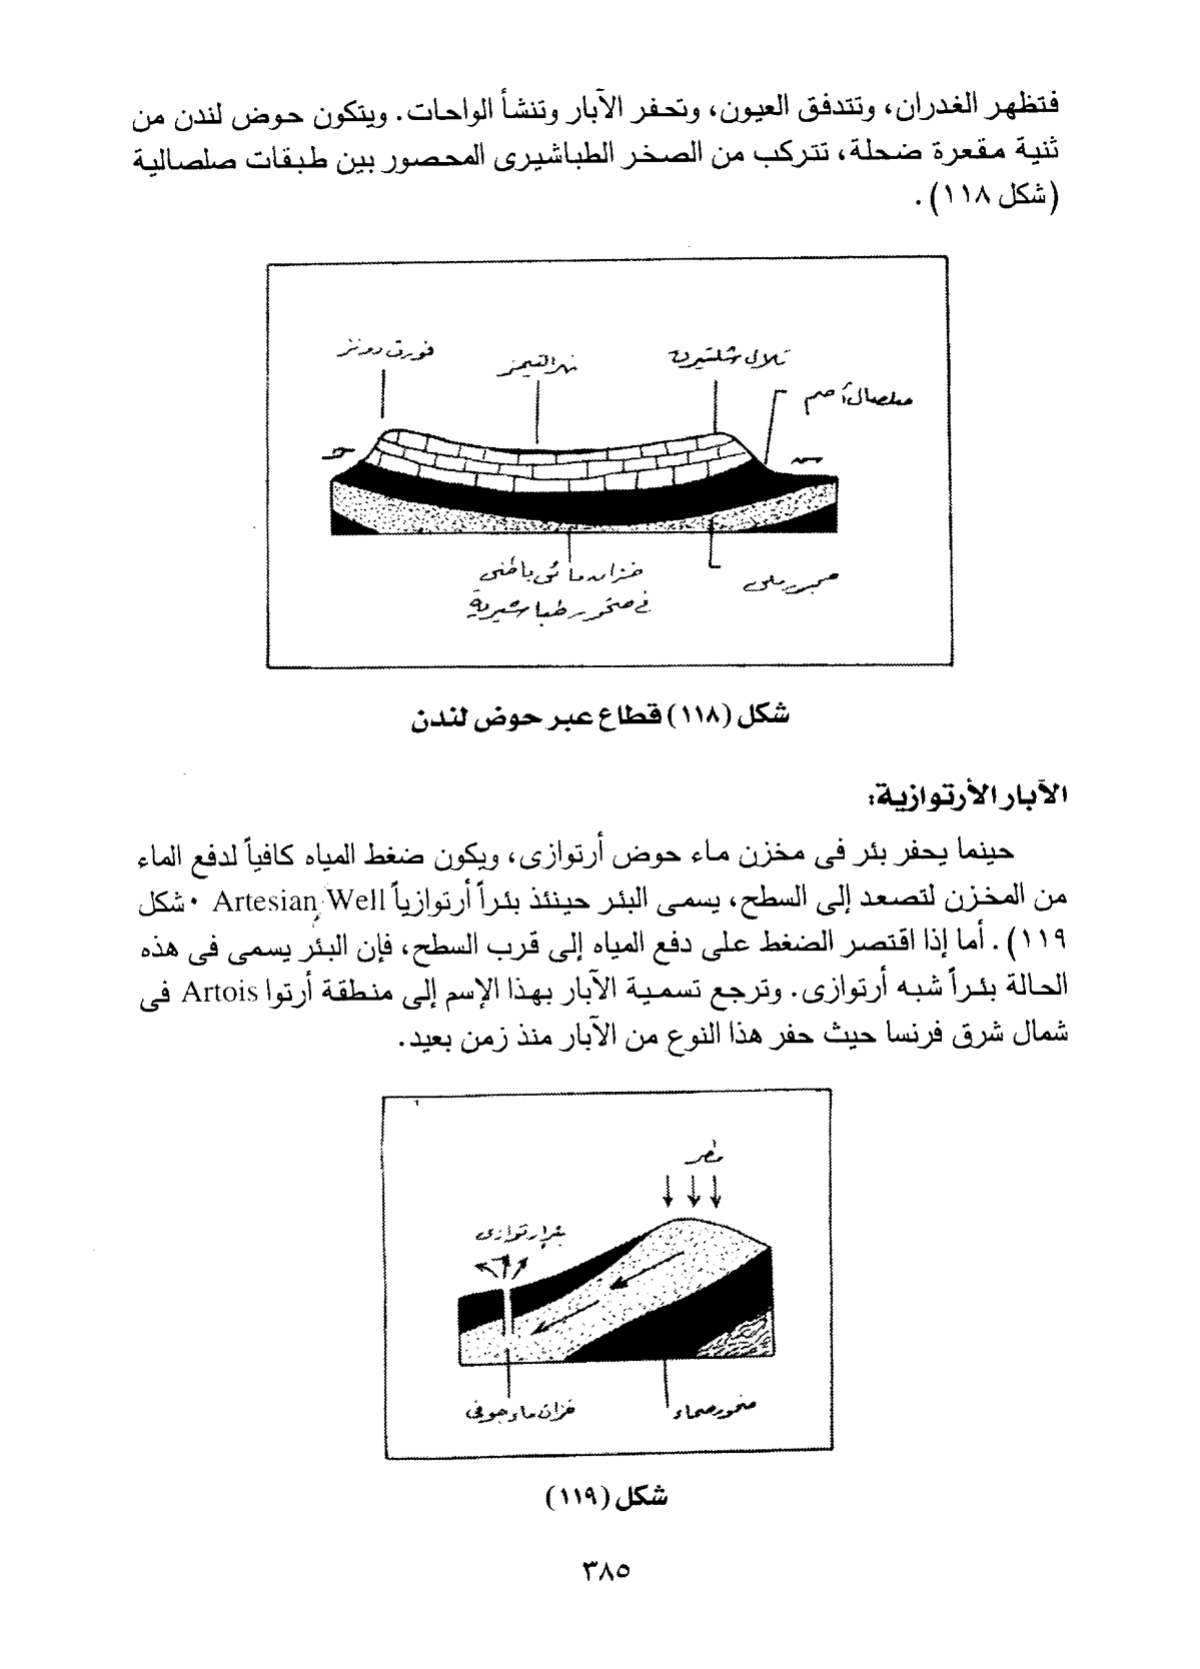 فتظهر الغدران، وتتدفق العيون، وتحفر الآبار وتنشأ الواحات. ويتكون حوض لندن من
ثنية مقعرة ضحلة، تتركب من الصخر الطباشيرى المحصور بين طبقات صلصالية
(شكل ١١٨) .
فورث دونز
نهر التيمز
تلال شلتيرن
صلصال أصم
خزان مائى باطنى
فى صخور طباشيرية
حجر رملى
شكل (١١٨) قطاع عبر حوض لندن
الآبار الأرتوازية:
حينما يحفر بئر فى مخزن ماء حوض أرتوازى، ويكون ضغط المياه كافياً لدفع الماء
من المخزن لتصعد إلى السطح، يسمى البئر حينئذ بئراً أرتوازياً Artesian Well • شكل
١١٩) . أما إذا اقتصر الضغط على دفع المياه إلى قرب السطح، فإن البئر يسمى فى هذه
الحالة بئراً شبه أرتوازى. وترجع تسمية الآبار بهذا الإسم إلى منطقة أرتوا Artois فى
شمال شرق فرنسا حيث حفر هذا النوع من الآبار منذ زمن بعيد.
مطر
بئر ارتوازى
خزان ماء جوفى
صخور صماء
شكل (١١٩)
٣٨٥